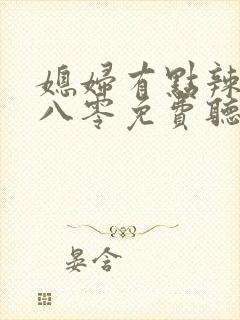 媳婦有點辣
八零免費聽
晏含